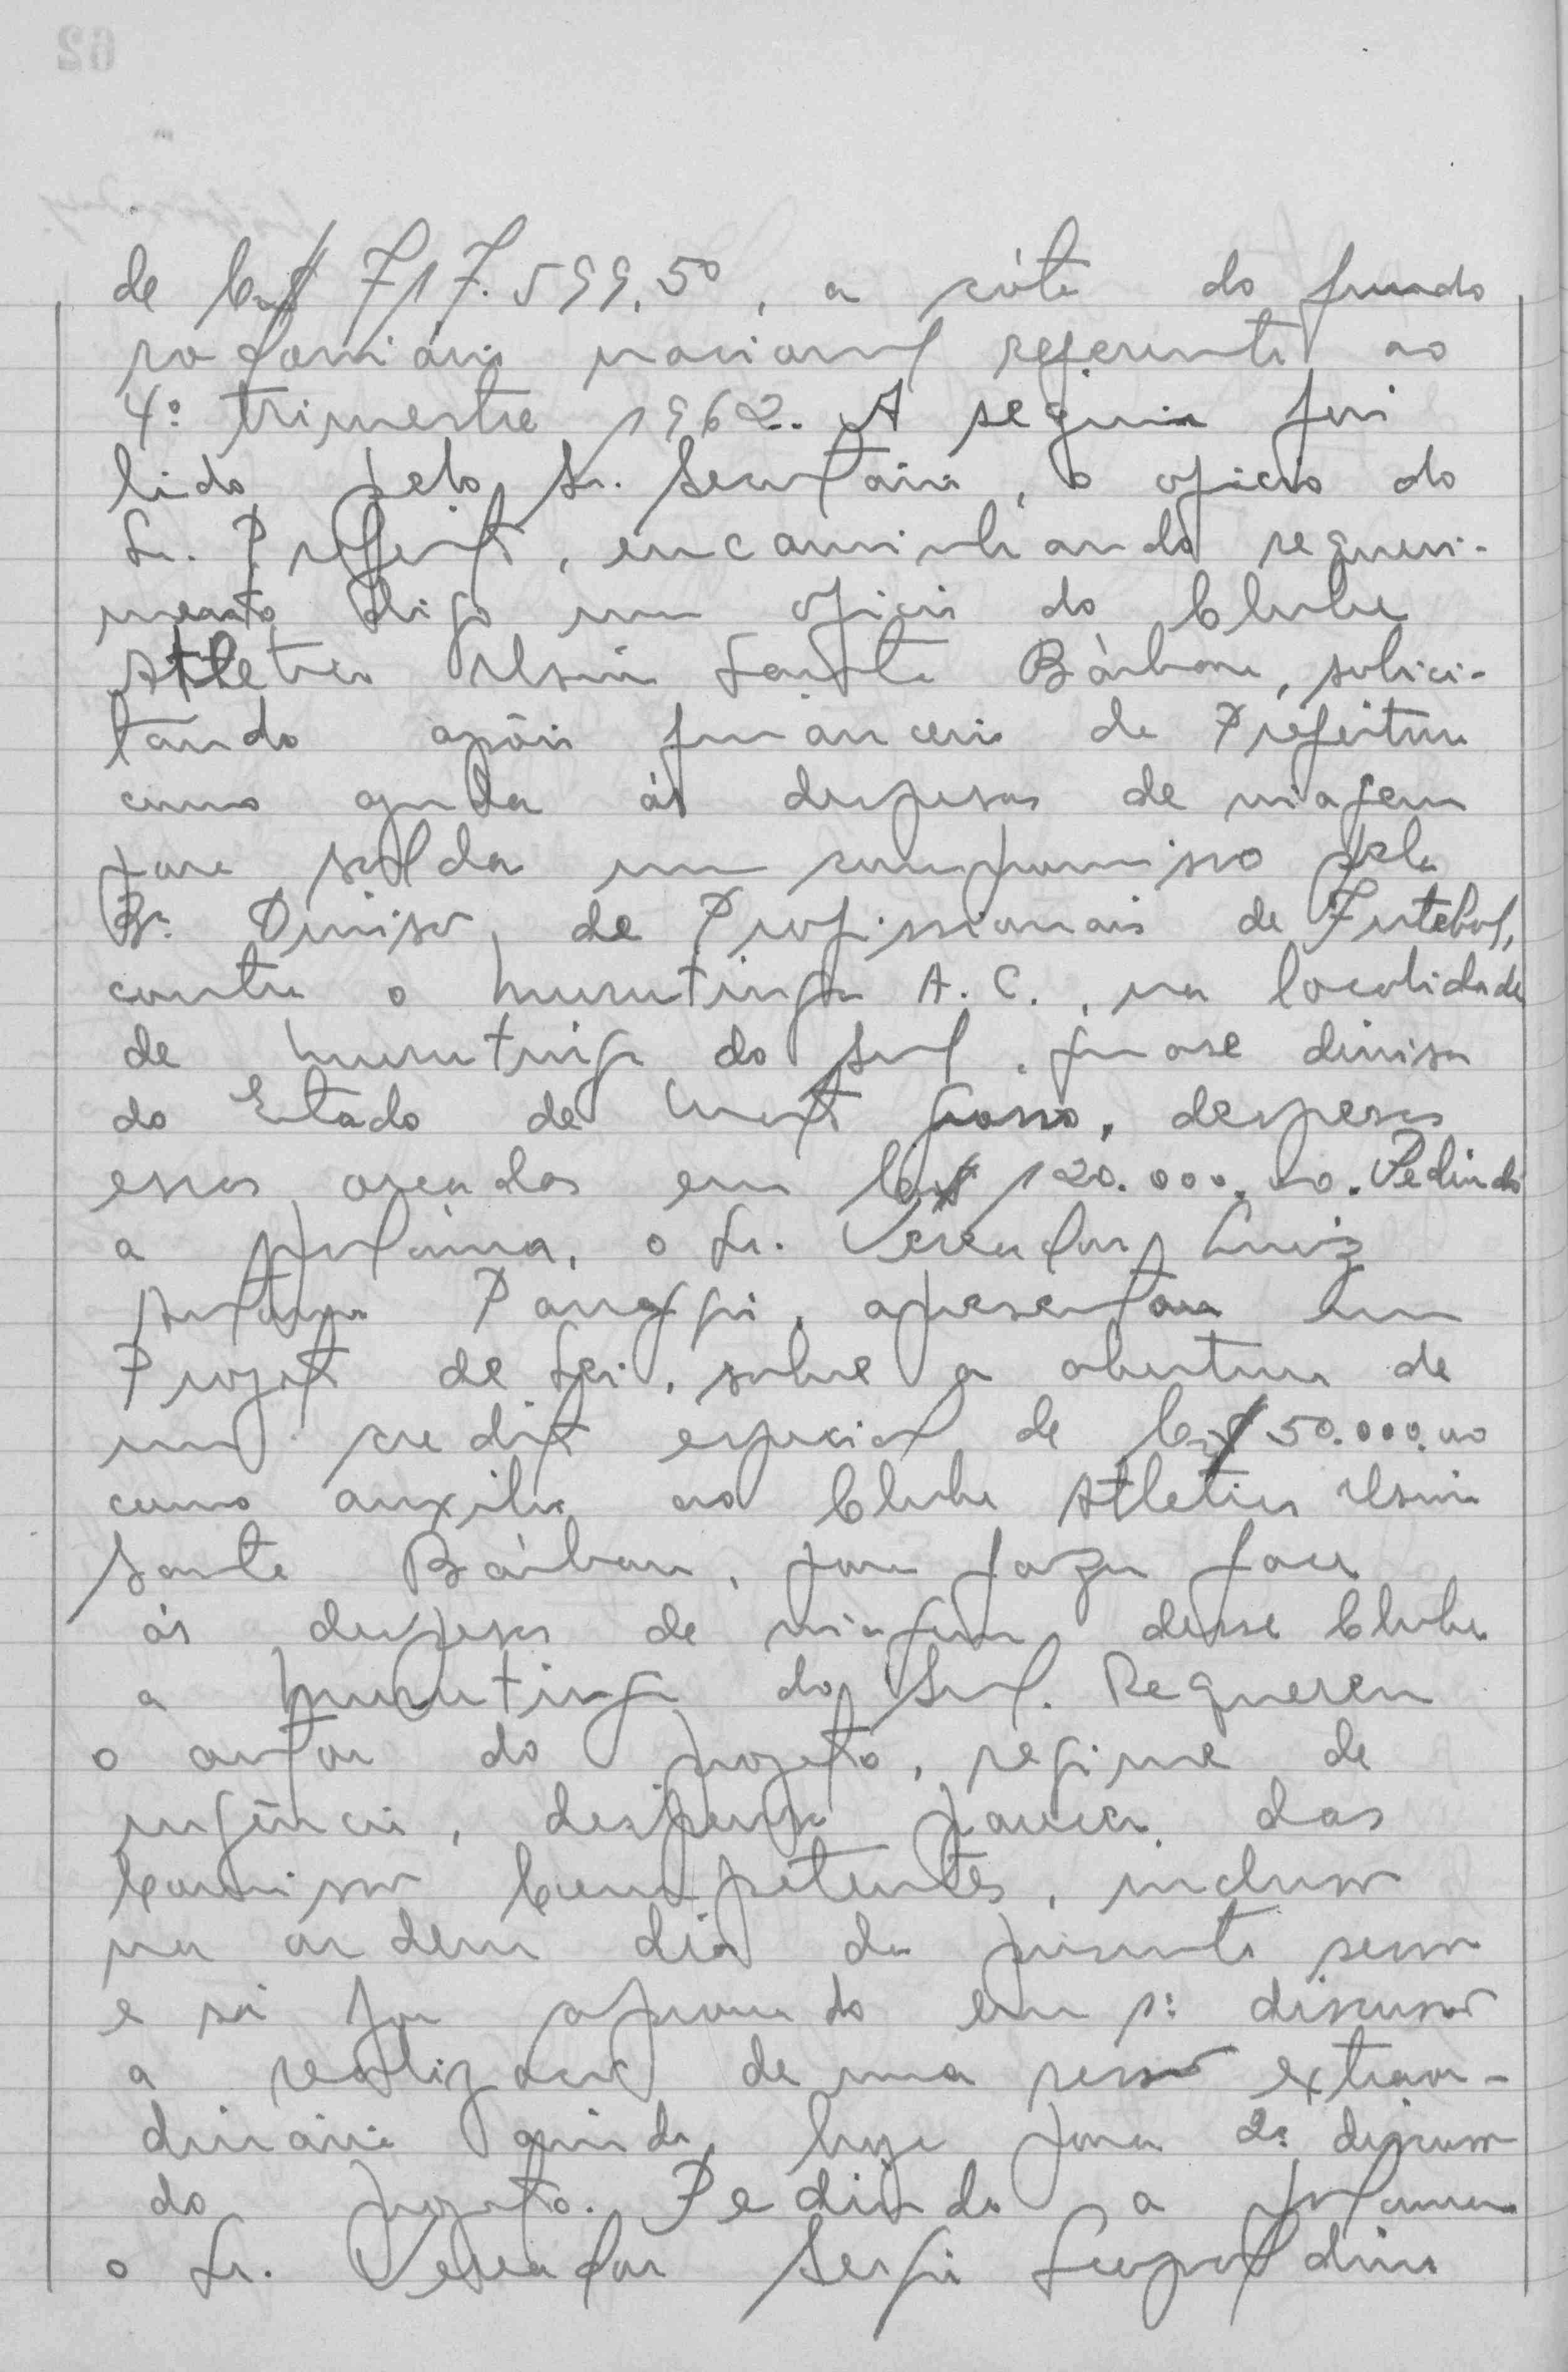 de Cr$ 717.599,50, a cóta do fundo
rodoviário nacional referente ao
4º trimestre 1962. A seguir foi
lido pelo Sr. Secretário, o oficio do
Sr. Prefeito, encaminhando requeri-
mento digo um oficio do Clube
Atletico Usina Santa Bárbara, solici-
tando apôio financeiro da Prefeitura
como ajuda ás despesas de viagem
para saldar um compromisso pela
3ª Divisão, de Profissionais de Futebol,
contra o Murutinga A. C., na localidade
de Murutinga do Sul, quase divisa
do Estado de Mato Grosso, despesas
essas orçadas em Cr$ 120.000,00. Pedindo
a palavra, o Sr. Vereador Luiz
Antonio Panaggi, apresentou um
Projeto de Lei, sobre a abertura de
um credito especial de Cr$ 50.000,00
como auxilio ao Clube Atletico Usina
Santa Bárbara, para fazer face
ás despesas de viagem desse Clube
a Murutinga do Sul. Requereu
o autor do projeto, regime de
urgência, dispensa parecer das
Comissões Competentes, inclusão
na ordem dia da presente sessão
e si for aprovado em 1ª discussão
a realização de uma sessão extraor-
dinária ainda hoje para 2ª discussão
do projeto. Pedindo a palavra
o Sr. Vereador Sergio Leopoldino